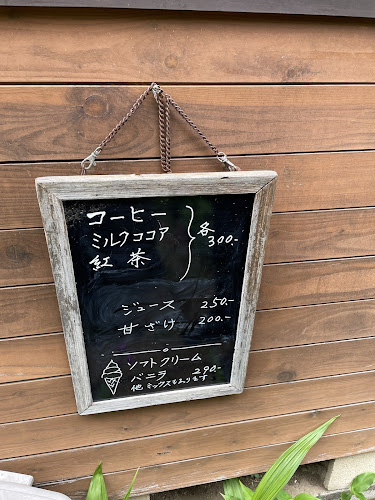 コーヒー
ミルクココア
紅茶
各
300.-
ジュース 250.-
甘ざけ 200.-
ソフトクリーム
バニラ 290.-
他ミックスもあります